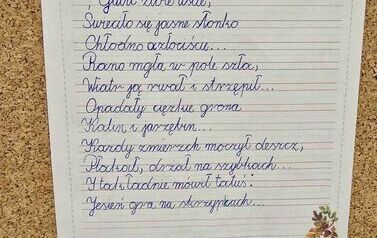 Świeciło się jasne słonko
Chłodno złociście...
Rano mgła w pole szła,
Wiatr ją rwał i strzępił...
Opadały ciężkie grona
Kalin i jarzębin...
Każdy zmierzch moczył deszcz,
Płakał, drżał na szybkach...
I tak ładnie mówił tatuś:
Jesień gra na skrzypkach...